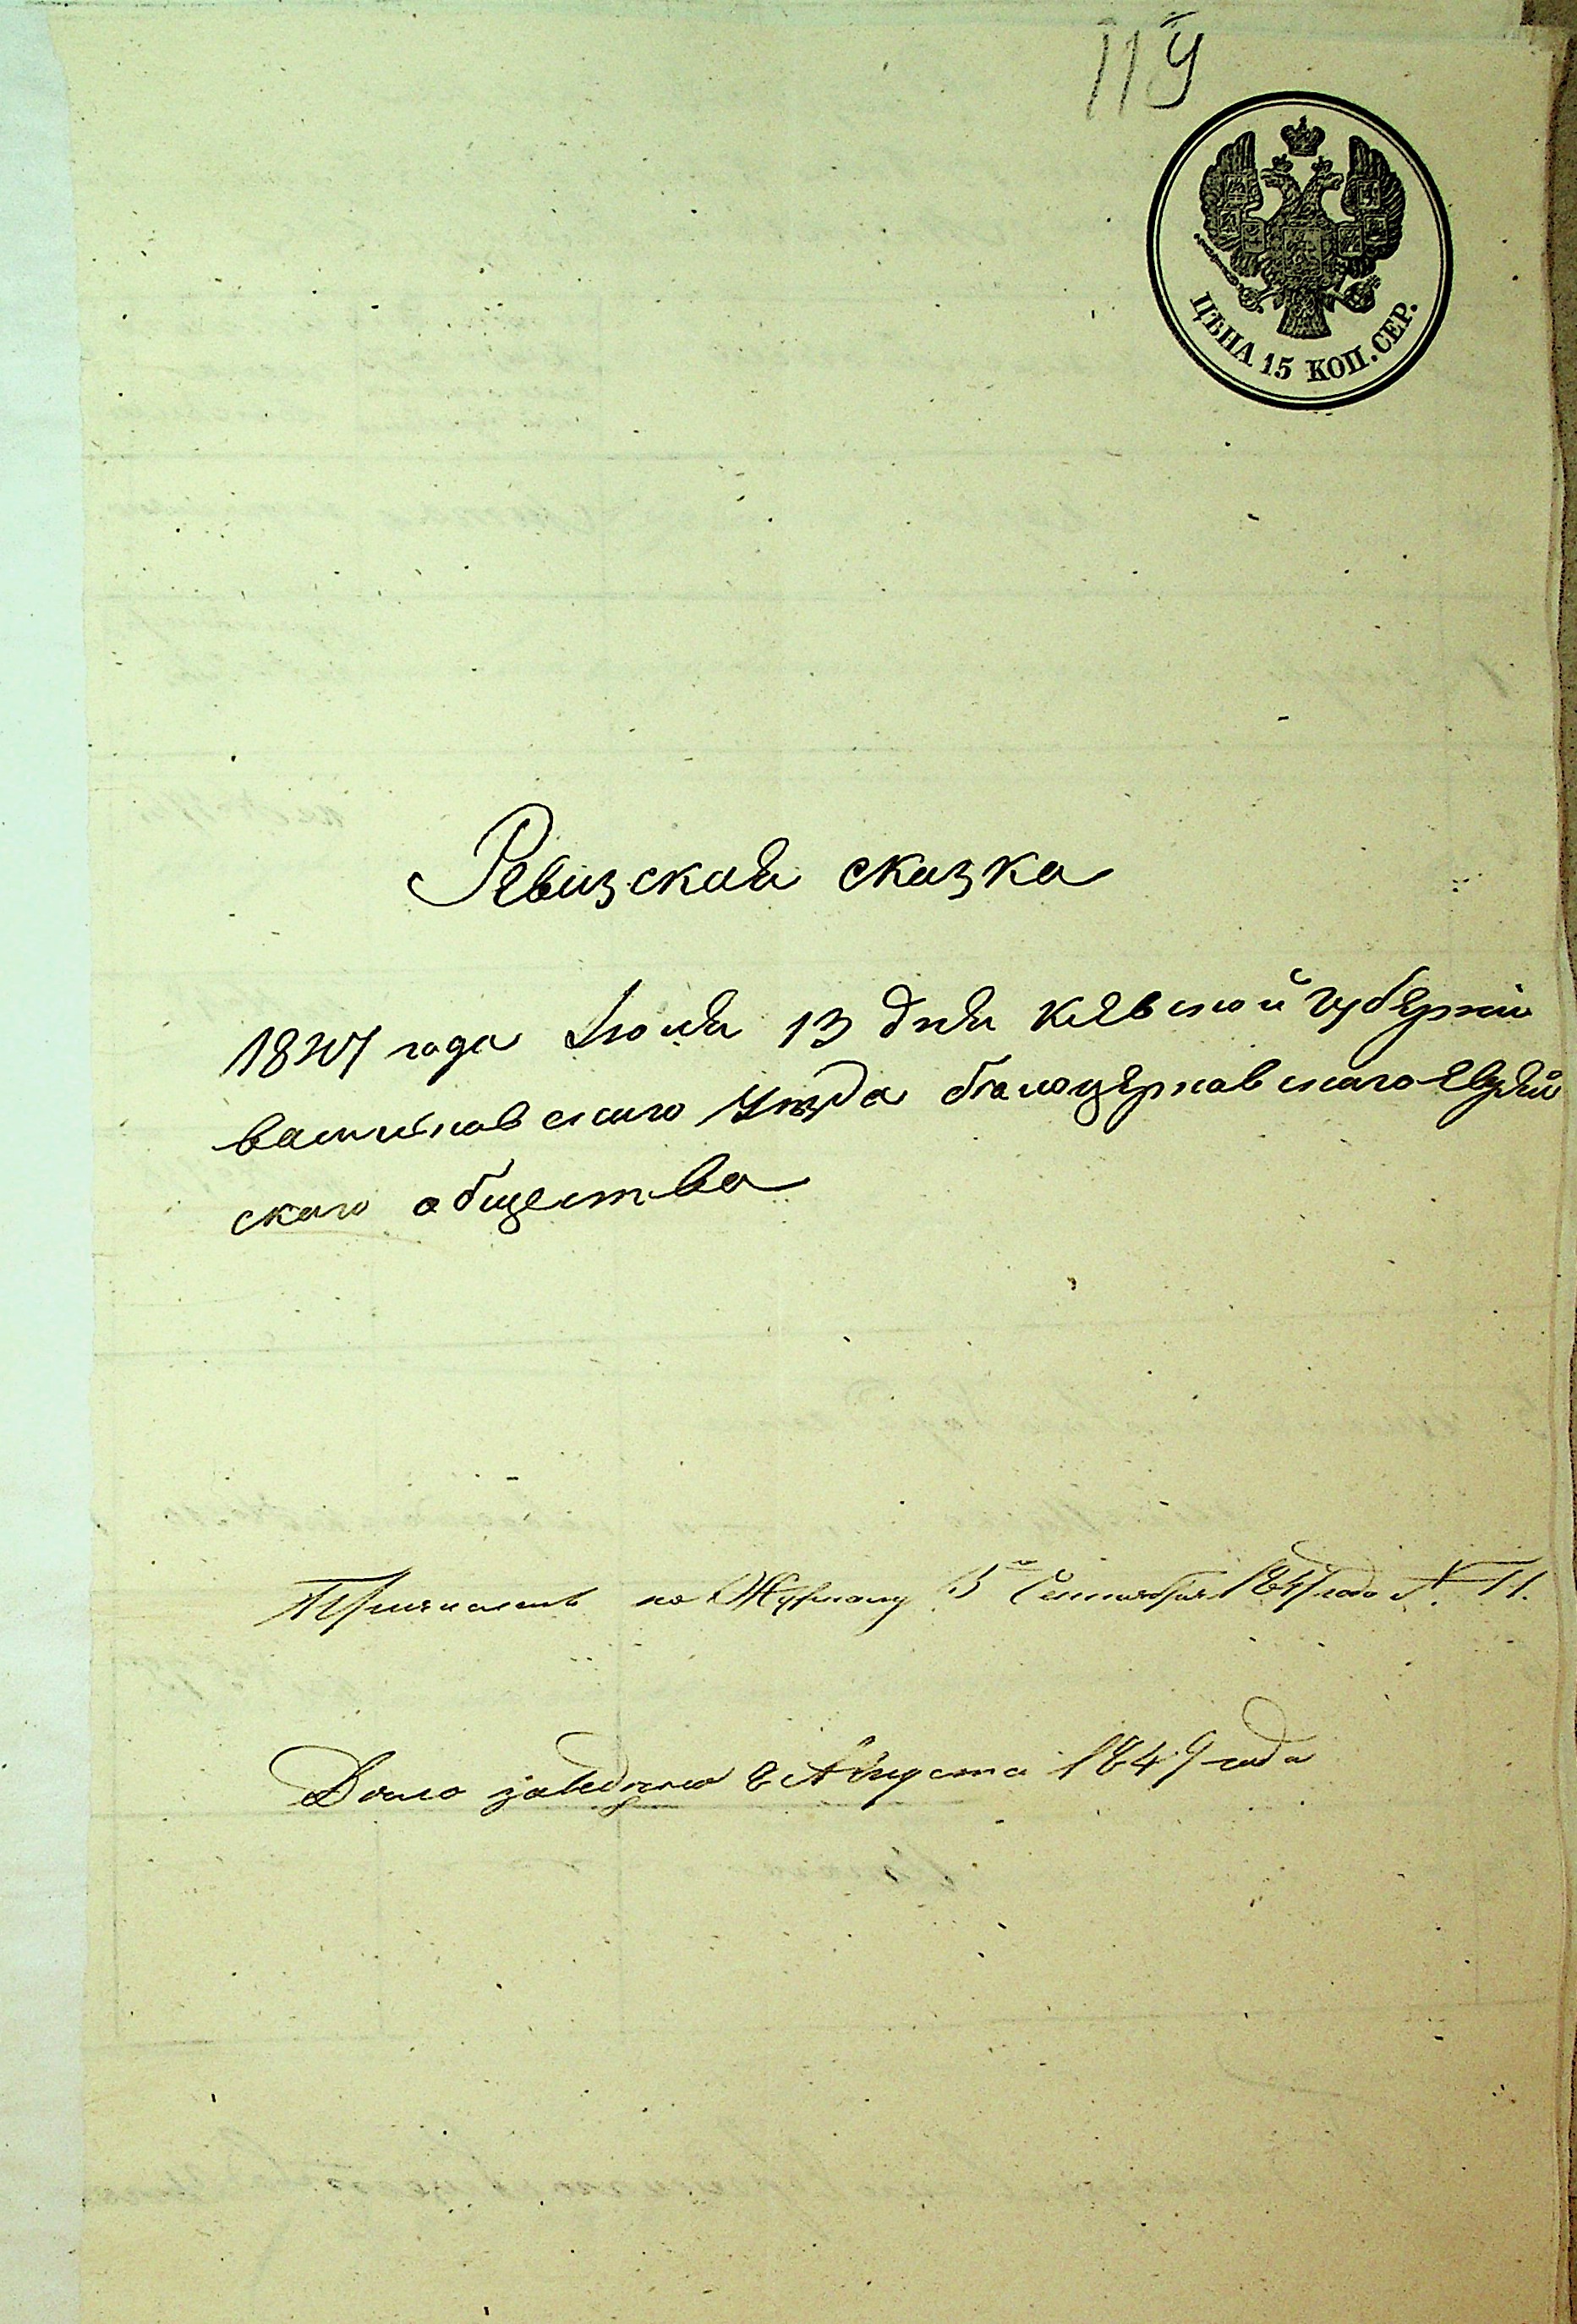 119
ЦѢНА 15 КОП. СЕР.
Ревизская сказка
1847 года Июля 13 дня киевской губернiи
васильковского уезда белоцерковского еврей
ского общества
по Журналу 5го Сентября 1847 года №. 11.
Дело заведено 8 Августа 1847 года